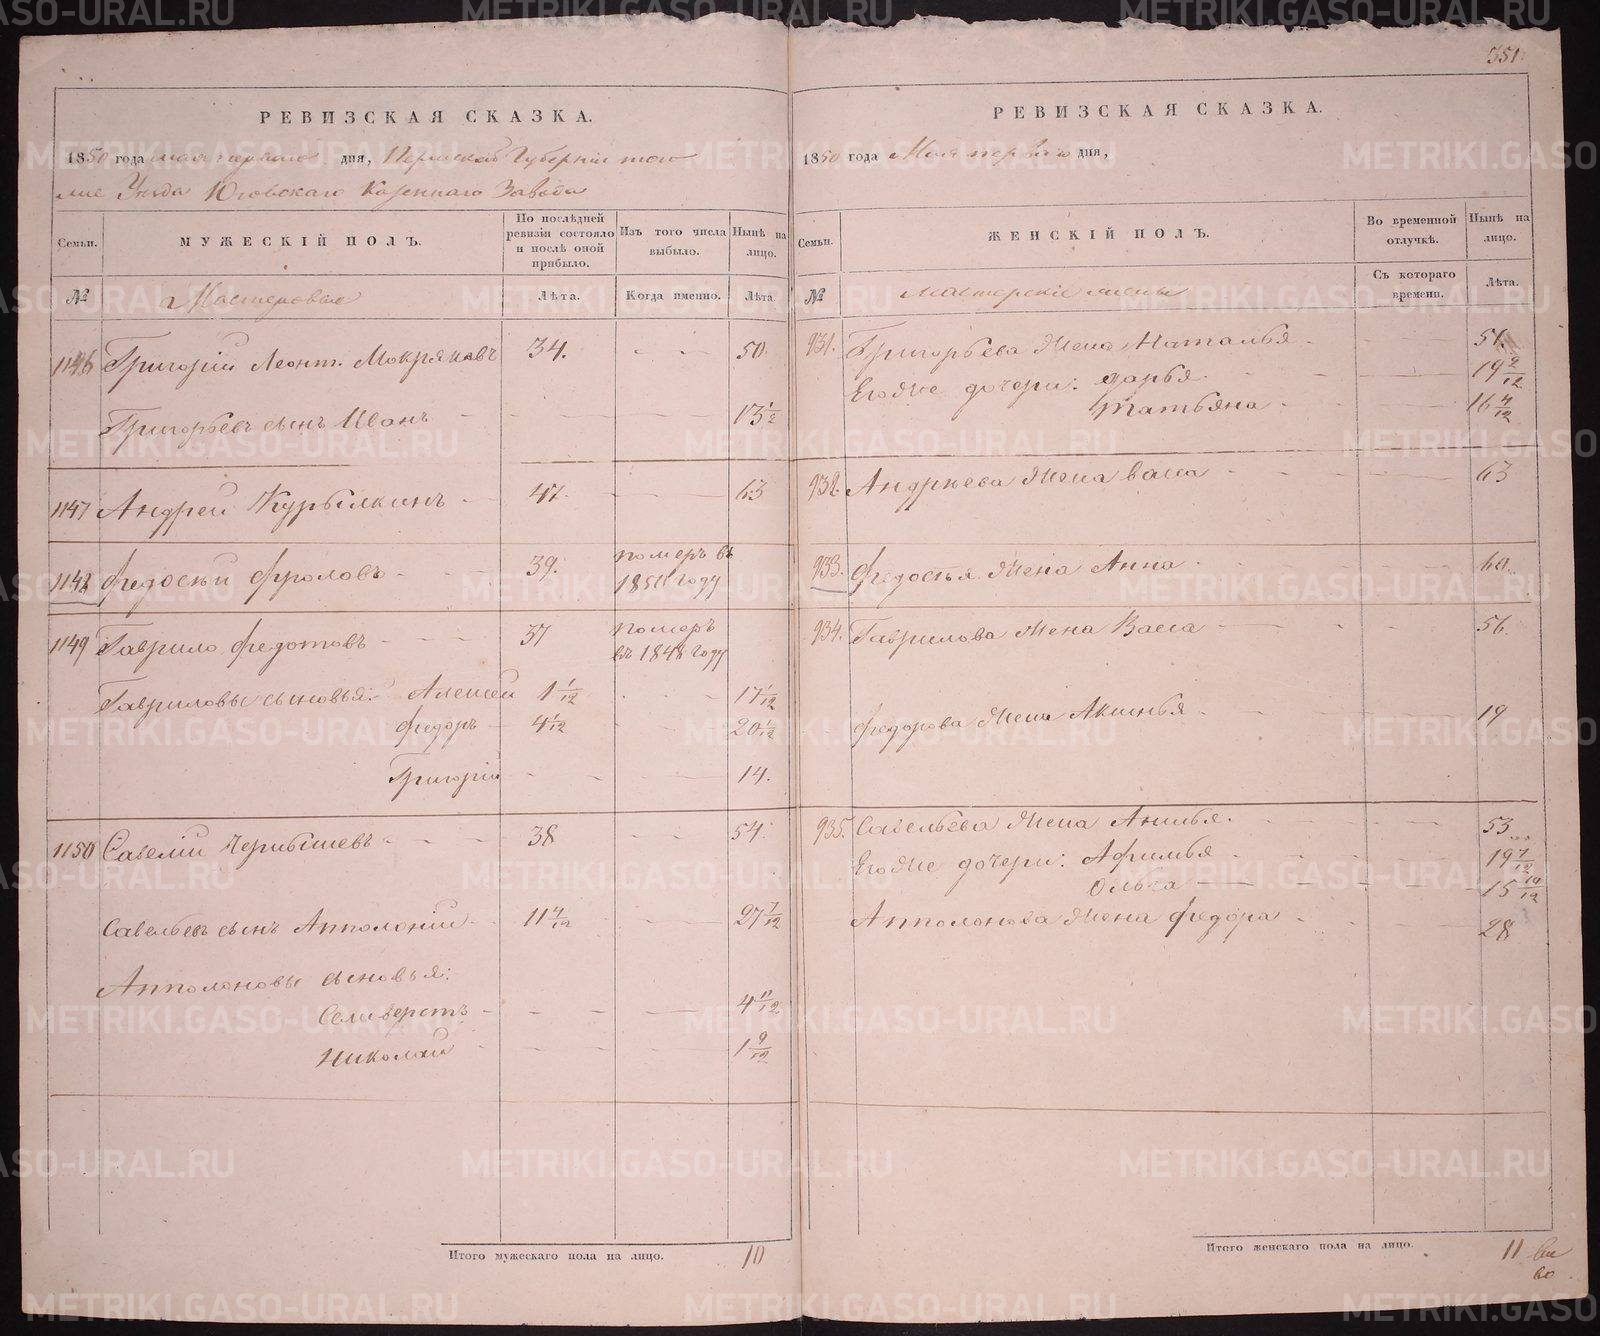 351
РЕВИЗСКАЯ СКАЗКА.
1850 года мая перваго дня, Пермской Губернiи тою
же Уѣзда Юговскаго Казеннаго Завода
Семьи. МУЖЕСКIЙ ПОЛЪ. По послѣдней ревизiи состояло и послѣ оной прибыло. Изъ того числа выбыло. Нынѣ на лицо.
№ Мастеровые Лѣта. Когда именно. Лѣта.
1146 Григорiй Леонт. Мокряковъ 34. 50.
Григорьевъ сынъ Иванъ 13 1/2
1147 Андрей Курбилкинъ 47. 63
1148 Федосѣй Фроловъ 39. померъ въ 1850 году
1149 Гаврило Федотовъ 37 померъ въ 1848 году
Гавриловы сыновья: Алексей 1 1/12 17 1/12
Федоръ 4 1/12 20 1/12
Григорiй 14.
1150 Савелiй Чернышевъ 38 54.
Савельевъ сынъ Апполонiй 11 4/12 27 7/12
Апполоновы сыновья:
Селиверстъ 4 11/12
Николай 1 9/12
Итого мужескаго пола на лицо. 10
РЕВИЗСКАЯ СКАЗКА.
1850 года Мая перваго дня,
Семьи. ЖЕНСКIЙ ПОЛЪ. Во временной отлучкѣ. Нынѣ на лицо.
№ Мастерскiе жены Съ котораго времени. Лѣта.
931. Григорьева жена Наталья 51.
Его же дочери: Дарья 19 2/12
Татьяна 16 4/12
932. Андреева жена Васса 63
933. Федосѣя жена Анна 60.
934. Гаврилова жена Васса 56.
Федорова жена Акинья 19
935. Савельева жена Анисья. 53
Его же дочери: Афимья 19 7/12
Ольга 15 10/12
Апполонова жена Федора 28
Итого женскаго пола на лицо. 11
METRIKI.GASO-URAL.RU